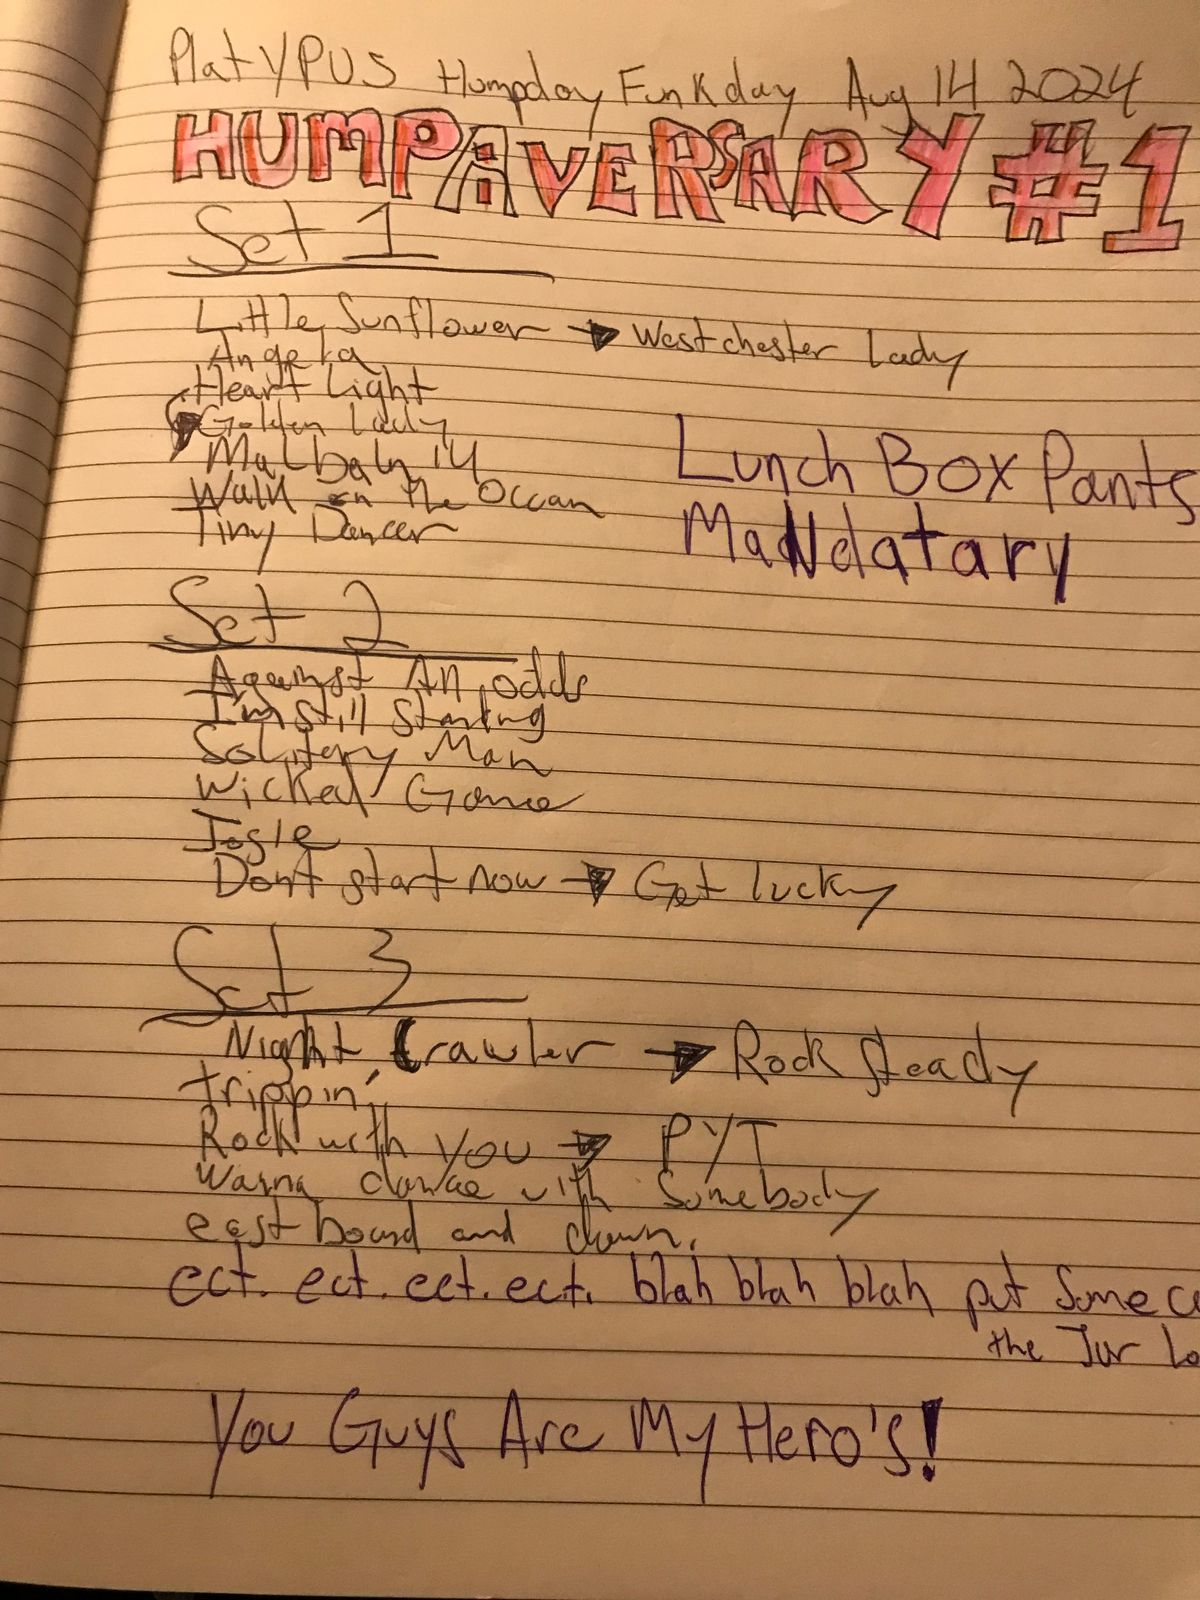 PlatYPUS Humpday Funkday Aug 14 2024
HUMPAVERSARY #1
Set 1
Little Sunflower → Westchester Lady
Angela
Heart Light
Golden Lady
Lunch Box Pants
MaNdatary
Walk on the Ocean
Tiny Dancer
Set 2
Against All odds
I'm still standing
Solitary Man
Wicked Game
Josie
Dont start now → Get lucky
Set 3
Night Crawler → Rock Steady
trippin'
Rock with you → PYT
Wanna dance with Somebody
east bound and down.
ect. ect. ect. ect. blah blah blah put Some
the
You Guys Are My Hero's!